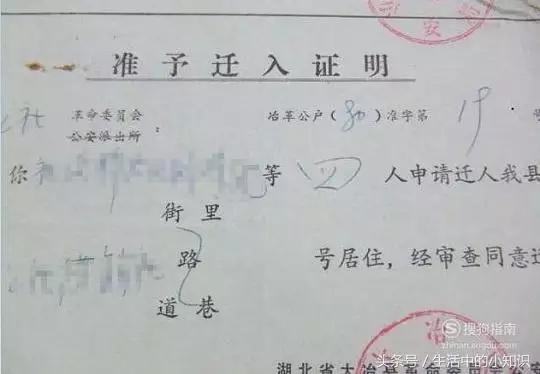 准予迁入证明
社 革命委员会
公安派出所 :
冶革公户(80)准字第19号
你 等四人申请迁入我县
街里
路
道巷
号居住,经审查同意迁
冶
湖北省大冶县革命委员会公安
搜狗指南
zhinan.sogou.com
头条号/生活中的小知识